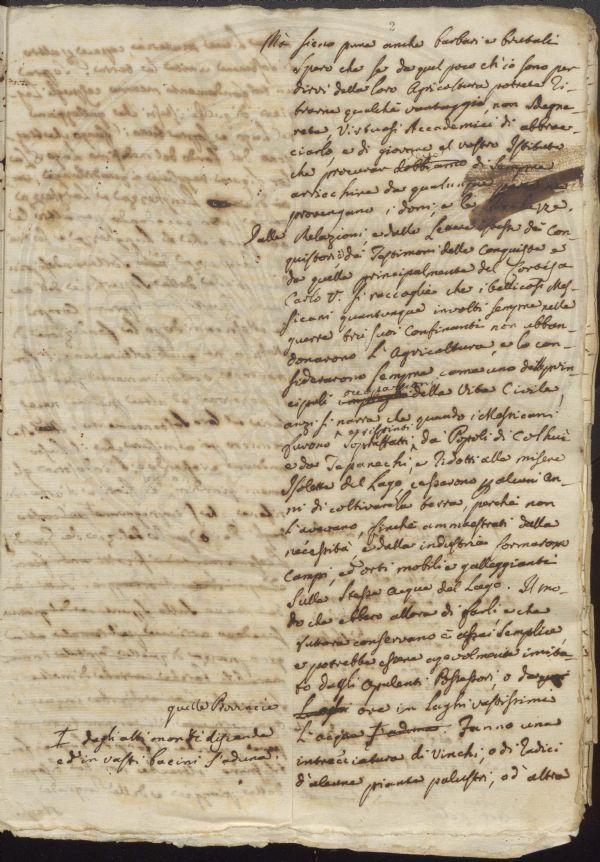 2
Ma sieno pure anche barbari e brutali
spero che se da quel poco ch'io sono per
dirvi della loro Agricoltura potrete ri-
trarne qualche vantaggio non sdegne-
rete Virtuosi Accademici di abbrac-
ciarlo, e di giovarne al vostro Istituto
che procurar dobbiamo di sempre
arricchire da qualunque parte ne
provengano i doni, e le
Dalle Relazioni e dalle Lettere stesse dei Con-
quistori dei Testimoni delle Conquiste e
da quelle principalmente del Cortes a
Carlo V. si raccoglie che i bellicosi Mes-
sicani quantunque involti sempre nelle
guerre tra' suoi Confinanti non abban-
donarono l'Agricoltura, e la con-
siderarono sempre come uno delli prin-
cipali occupazioni della Vita Civile
anzi si narra che quando i Messicani
furono soprafatti, da' Popoli di Colhui
e da Tepanechi, e ridotti alla misere
Isolette del Lago cessarono p alcuni an-
ni di coltivare la terra, perchè non
l'avevano, finchè ammaestrati dalla
necessità, e dalla industria formarono
Campi, ed orti mobili e galleggianti
sulla stessa acqua del Lago. Il mo-
do che ebbero allora di farli e che
tuttora conservano è assai semplice
e potrebbe essere agevolmente imita-
to dagli opulenti Possessori, o da
ora in luoghi vastissima
l'acqua ‡ aduna. Fanno una
intrecciatura di Vinchi, o di radici
d'alcune piante palustri, o d'altra
quelle Provincie
‡ dagli alti monti discende
ed in vasti bacini s'aduna.